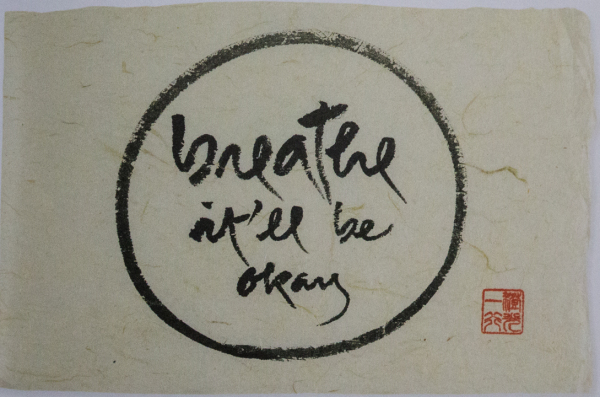 breathe
it'll be
okay